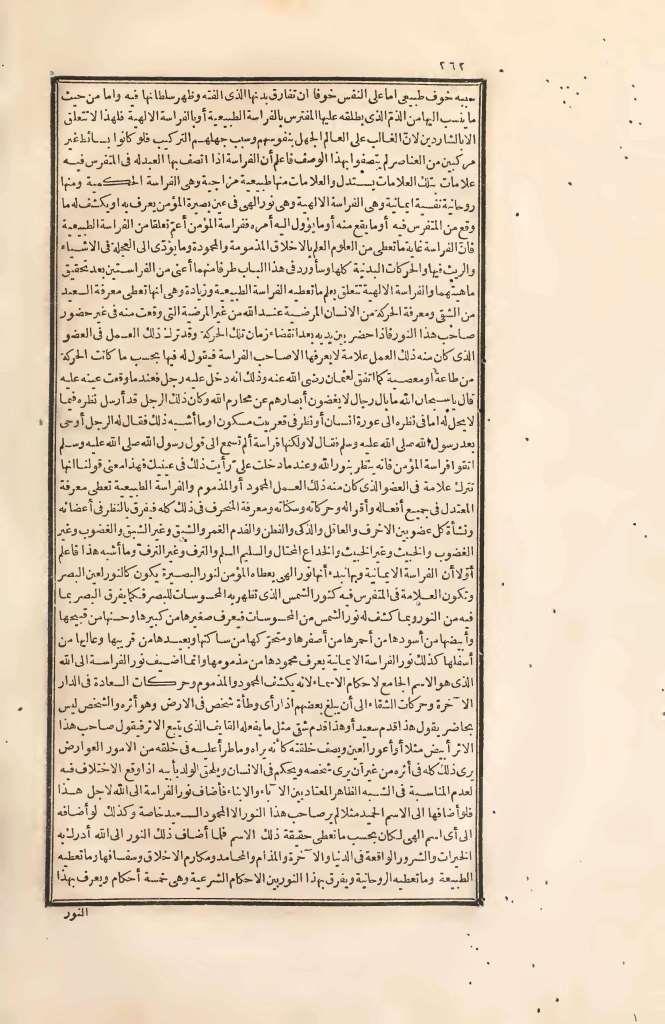 ٢٦٢
سببه خوف طبيعى اما على النفس خوفا ان تفارق بدنها الذى الفته وظهر سلطانها فيه واما من حيث
ما ينسب اليها من الذم الذى يطلقه عليها المتفرس بالفراسة الطبيعية أو بالفراسة الالهية فلهذا لا تتعلق
الا بالشاردين لانّ الغالب على العالم الجهل بنفوسهم وسبب جهلهم التركيب فلو كانوا بسائط غير
مركبين من العناصر لم يتصفوا بهذا الوصف فاعلم أن الفراسة اذا اتصف بها العبد له فى المتفرس فيه
علامات بتلك العلامات يستدل والعلامات منها طبيعية مزاجية وهى الفراسة الحكمية ومنها
روحانية نفسية ايمانية وهى الفراسة الالهية وهى نور الهى فى عين بصيرة المؤمن يعرف به أو يكشف له ما
وقع من المتفرس فيه أو ما يقع منه أو ما يؤول اليه أمره ففراسة المؤمن أعمّ تعلقا من الفراسة الطبيعية
فانّ الفراسة غاية ما تعطى من العلوم العلم بالاخلاق المذمومة والمحمودة وما يؤدّى الى العجلة فى الاشياء
والريث فيها والحركات البدنية كلها وسأورد فى هذا الباب طرفا منهما أعنى من الفراستين بعد تحقيق
ماهيتهما والفراسة الالهية تتعلق بعلم ما تعطيه الفراسة الطبيعية وزيادة وهى انها تعطى معرفة السعيد
من الشقى ومعرفة الحركة من الانسان المرضية عند الله من غير المرضية التى وقعت منه فى غير حضور
صاحب هذا النور فاذا حضر بين يديه بعد انقضاء زمان تلك الحركة وقد ترك ذلك العمل فى العضو
الذى كان منه ذلك العمل علامة لا يعرفها الا صاحب الفراسة فيقول له فيها بحسب ما كانت الحركة
من طاعة أو معصية كما اتفق لعثمان رضى الله عنه وذلك انه دخل عليه رجل فعندما وقعت عينه عليه
قال يا سبحان الله ما بال رجال لا يغضون أبصارهم عن محارم الله وكان ذلك الرجل قد أرسل نظره فيما
لا يحل له اما فى نظره الى عورة انسان أو نظر فى قعر بيت مسكون أو ما أشبه ذلك فقال له الرجل أوحى
بعد رسول الله صلى الله عليه وسلم فقال لا ولكنها فراسة ألم تسمع الى قول رسول الله صلى الله عليه وسلم
اتقوا فراسة المؤمن فانه ينظر بنور الله وعندما دخلت علىّ رأيت ذلك فى عينيك فهذا معنى قولنا انها
تترك علامة فى العضو الذى كان منه ذلك العمل المحمود أو المذموم والفراسة الطبيعية تعطى معرفة
المعتدل فى جميع أفعاله وأقواله وحركاته وسكناته ومعرفة المنحرف فى ذلك كله فيفرق بالنظر فى أعضائه
ونشأة كل عضو بين الاخرق والعاقل والذكى والفطن والفدم الغمر والشبق وغير الشبق والغضوب وغير
الغضوب والخبيث وغير الخبيث والخداع المحتال والسليم المسلم والنزق وغير النزق وما أشبه هذا فاعلم
أوّلا أن الفراسة الايمانية وبها نبدء أنها نور الهى يعطاه المؤمن لنور البصيرة يكون كالنور لعين البصر
وتكون العلامة فى المتفرس فيه كنور الشمس الذى تظهر به المحسوسات للبصر فكما يفرق البصر بما
فيه من النور وبما كشف له نور الشمس من المحسوسات فيعرف صغيرها من كبيرها وحسنها من قبيحها
وأبيضها من أسودها من أحمرها من أصفرها ومتحرّكها من ساكنها وبعيدها من قريبها وعاليها من
أسفلها كذلك نور الفراسة الايمانية يعرف محمودها من مذمومها وانما اضيف نور الفراسة الى الله
الذى هو الاسم الجامع لاحكام الاسماء لانه يكشف المحمود والمذموم وحركات السعادة فى الدار
الآخرة وحركات الشقاء الى أن يبلغ بعضهم اذا رأى وطأة شخص فى الارض وهو أثره والشخص ليس
بحاضر يقول هذا قدم سعيد أو هذا قدم شقى مثل ما يفعله القايف الذى يتبع الاثر فيقول صاحب هذا
الاثر أبيض مثلا أو أعور العين ويصف خلقته كأنه يراه وما طرأ عليه فى خلقه من الامور العوارض
يرى ذلك كله فى أثره من غير أن يرى شخصه ويحكم فى الانسان ويلحق الولد بأبيه اذا وقع الاختلاف فيه
لعدم المناسبة فى الشبه الظاهر المعتاد بين الآباء والابناء فأضاف نور الفراسة الى الله لاجل هذا
فلو أضافها الى الاسم الحميد مثلا لم ير صاحب هذا النور الا المحمود السعيد خاصة وكذلك لو أضافه
الى أى اسم الهى لكان بحسب ما تعطى حقيقة ذلك الاسم فلما أضاف ذلك النور الى الله أدرك به
الخيرات والشرور الواقعة فى الدنيا والآخرة والمذامّ والمحامد ومكارم الاخلاق وسفسافها وما تعطيه
الطبيعة وما تعطيه الروحانية ويفرق بهذا النور بين الاحكام الشرعية وهى خمسة أحكام ويعرف بهذا
النور